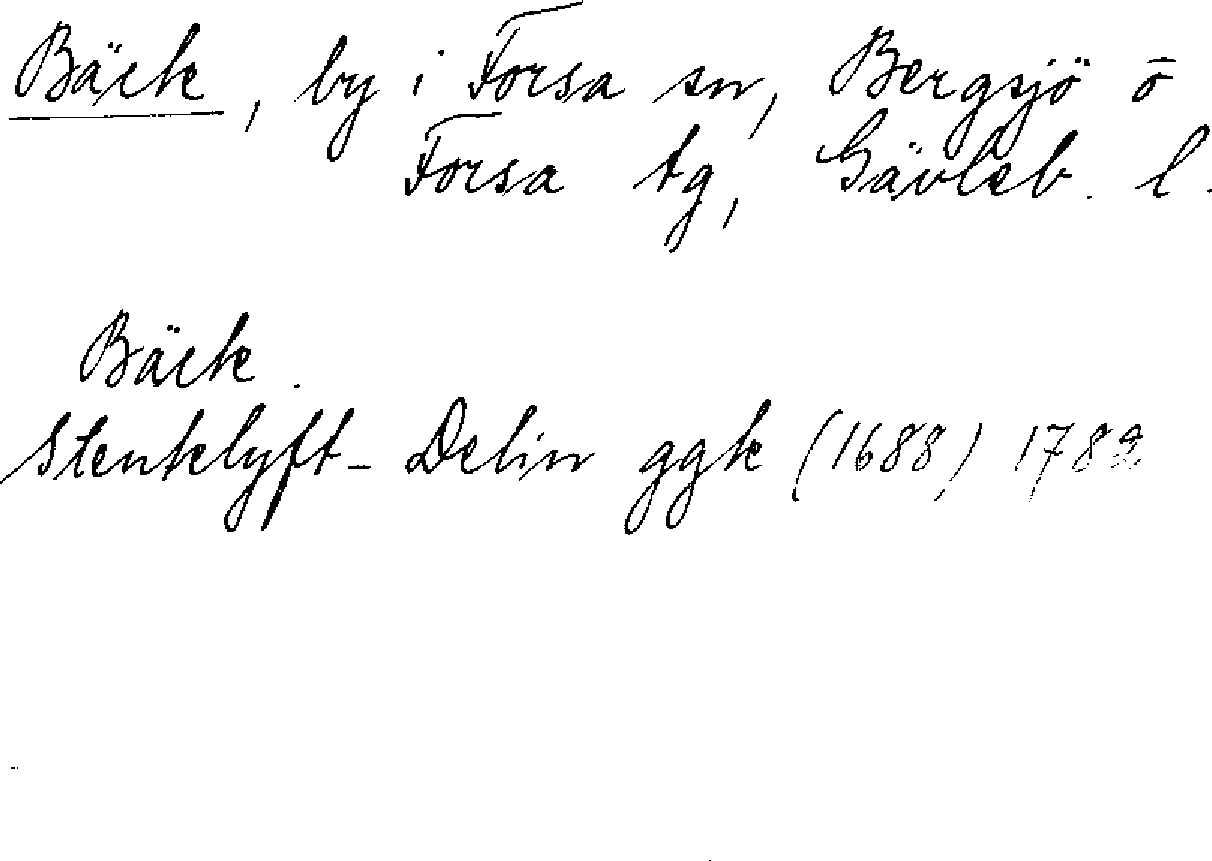 Bäck, by i Forsa sn, Bergsjö o
Forsa tg, Gävleb. l.
Bäck.
Stenklyft- Delin ggk (1688) 1782